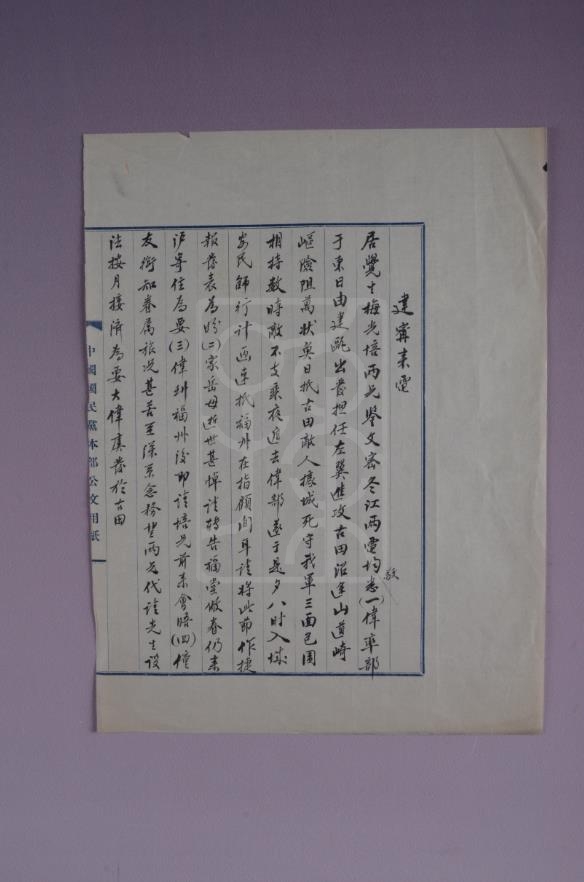 建寧來電
居覺生梅光培兩兄鑒文密冬江兩電均悉(一)偉率部
敬
于東日由建甌出發担任左翼進攻古田沿途山道崎
嶇險阻萬狀奠日抵古田敵人據城死守我軍三面包圍
相持數時敵不支乘夜退去偉部遂于是夕八时入城
安民飭行計畫逕抵福州在指顧间耳請將此節作捷
報發表為盼(二)家岳母逝世甚悼請轉告福堂做眷仍在
沪寄住為要(三)偉到福州後即請培兄前来會晤(四)
友衡知眷属旅况甚苦至深系念務望兩兄代請先生設
法按月接濟為要大偉庚發於古田
中國國民黨本部公文用紙